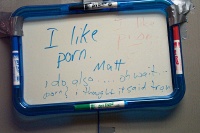 I like
porn.
Matt
i do also... oh wait...
porn? i thought it said from